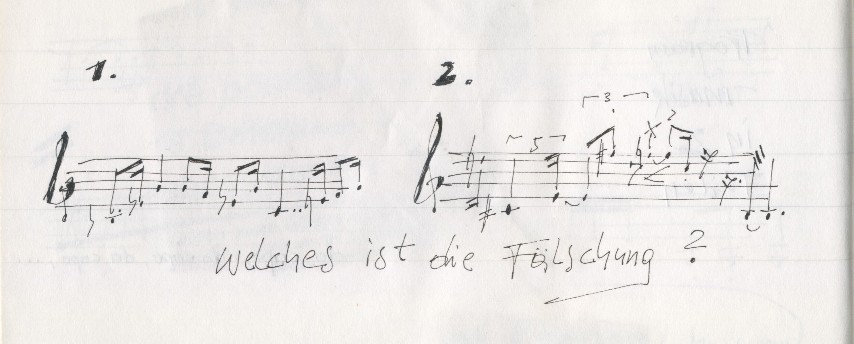 1. 2.
3
5
welches ist die Fälschung?